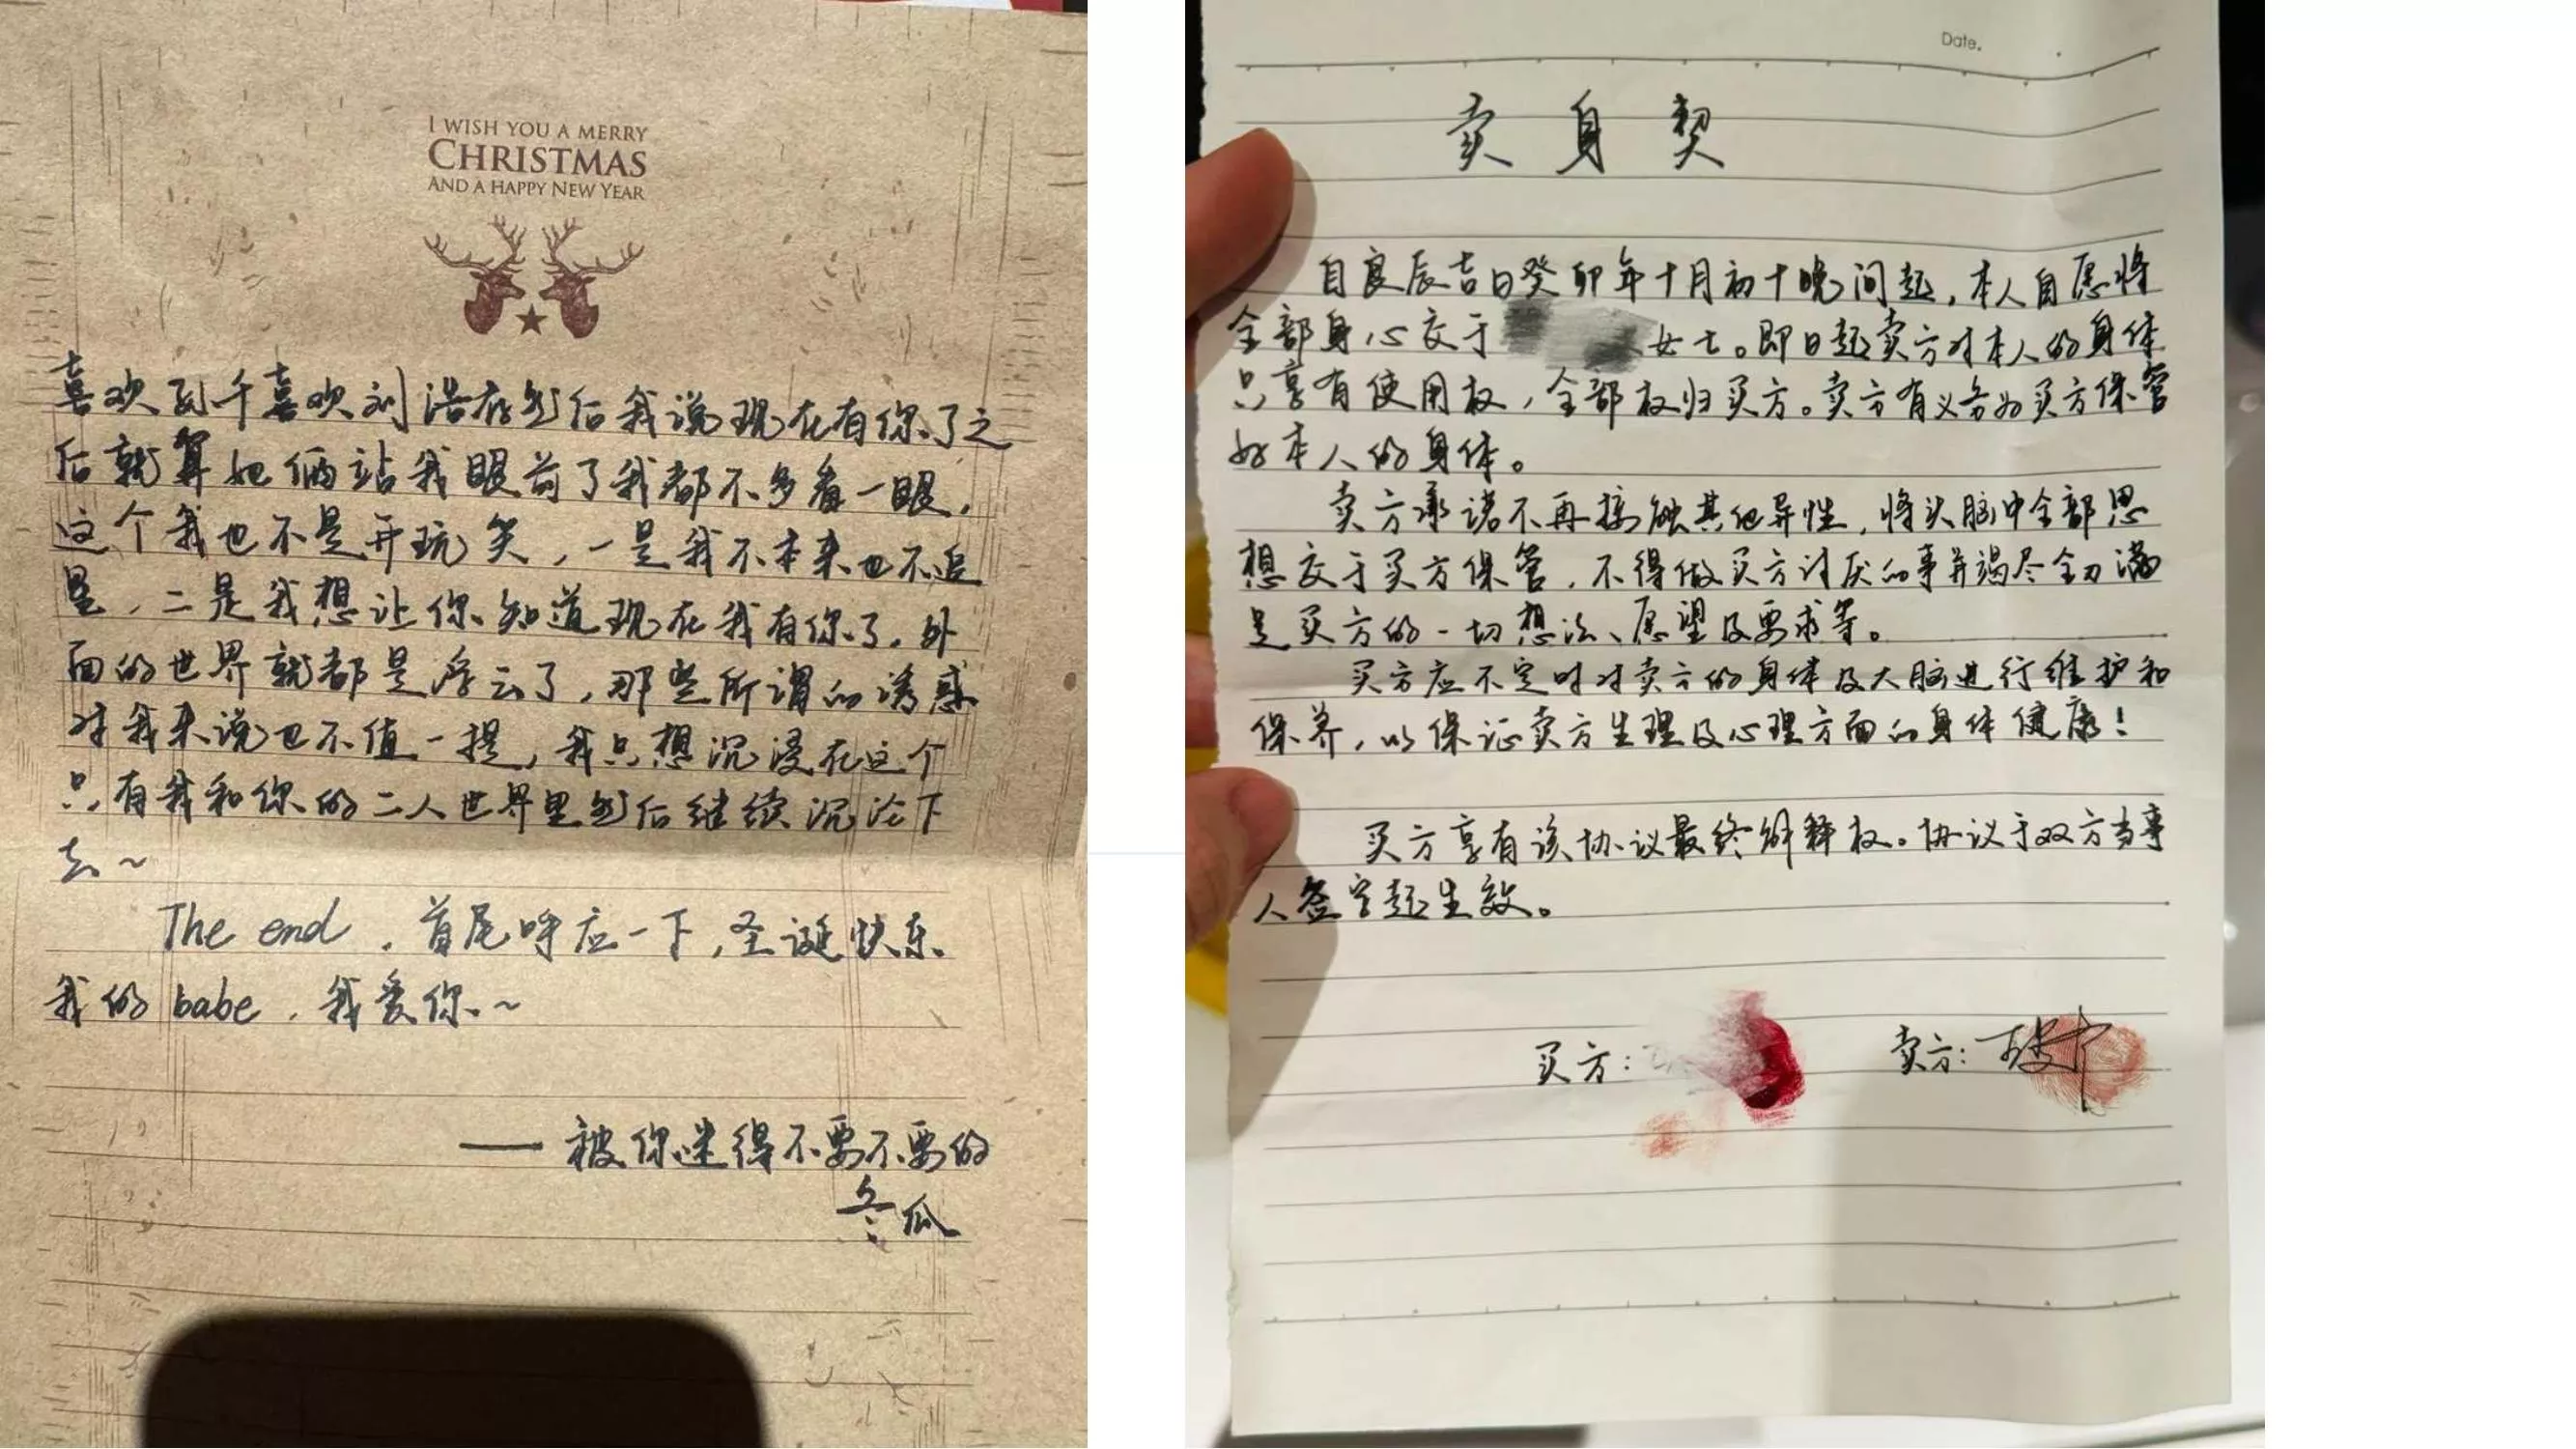 I WISH YOU A MERRY
CHRISTMAS
AND A HAPPY NEW YEAR
喜欢到千喜欢刘浩存然后我说现在有你了之
后就算她俩站我眼前了我都不多看一眼，
这个我也不是开玩笑，一是我不本来也不追
星，二是我想让你知道现在我有你了，外
面的世界就都是浮云了，那些所谓的诱惑
对我来说也不值一提，我只想沉浸在这个
只有我和你的二人世界里然后继续沉沦下
去～
The end，首尾呼应一下，圣诞快乐
我的babe，我爱你～
——被你迷得不要不要的
冬瓜
Date.
卖身契
自良辰吉日癸卯年十月初十晚间起，本人自愿将
全部身心交于女士。即日起卖方对本人的身体
只享有使用权，全部权归买方。卖方有义务为买方保管
好本人的身体。
卖方承诺不再接触其他异性，将头脑中全部思
想交于买方保管，不得做买方讨厌的事并竭尽全力满
足买方的一切想法、愿望及要求等。
买方应不定时对卖方的身体及大脑进行维护和
保养，以保证卖方生理及心理方面的身体健康！
买方享有该协议最终解释权。协议于双方当事
人签字起生效。
买方：
卖方：